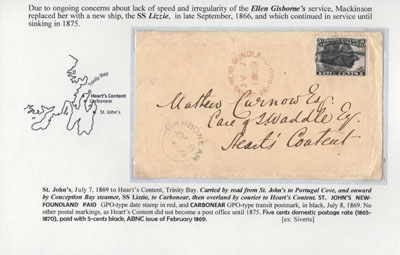 Due to ongoing concerns about lack of speed and irregularity of the Ellen Gisborne's service, Mackinson
replaced her with a new ship, the SS Lizzie, in late September, 1866, and which continued in service until
sinking in 1875.
Trinity Bay
Heart's Content
Carbonear
St. John's
FIVE CENTS
Mathew Curnow Esq.
Care of S Waddle Esq.
Heart's Content
CARBONEAR
St. John's, July 7, 1869 to Heart's Content, Trinity Bay. Carried by road from St. John's to Portugal Cove, and onward
by Conception Bay steamer, SS Lizzie, to Carbonear, then overland by courier to Heart's Content. ST. JOHN'S NEW-
FOUNDLAND PAID GPO-type date stamp in red, and CARBONEAR GPO-type transit postmark, in black, July 8, 1869. No
other postal markings, as Heart's Content did not become a post office until 1875. Five cents domestic postage rate (1865-
1870), paid with 5-cents black, ABNC issue of February 1869.
[ex: Siverts]